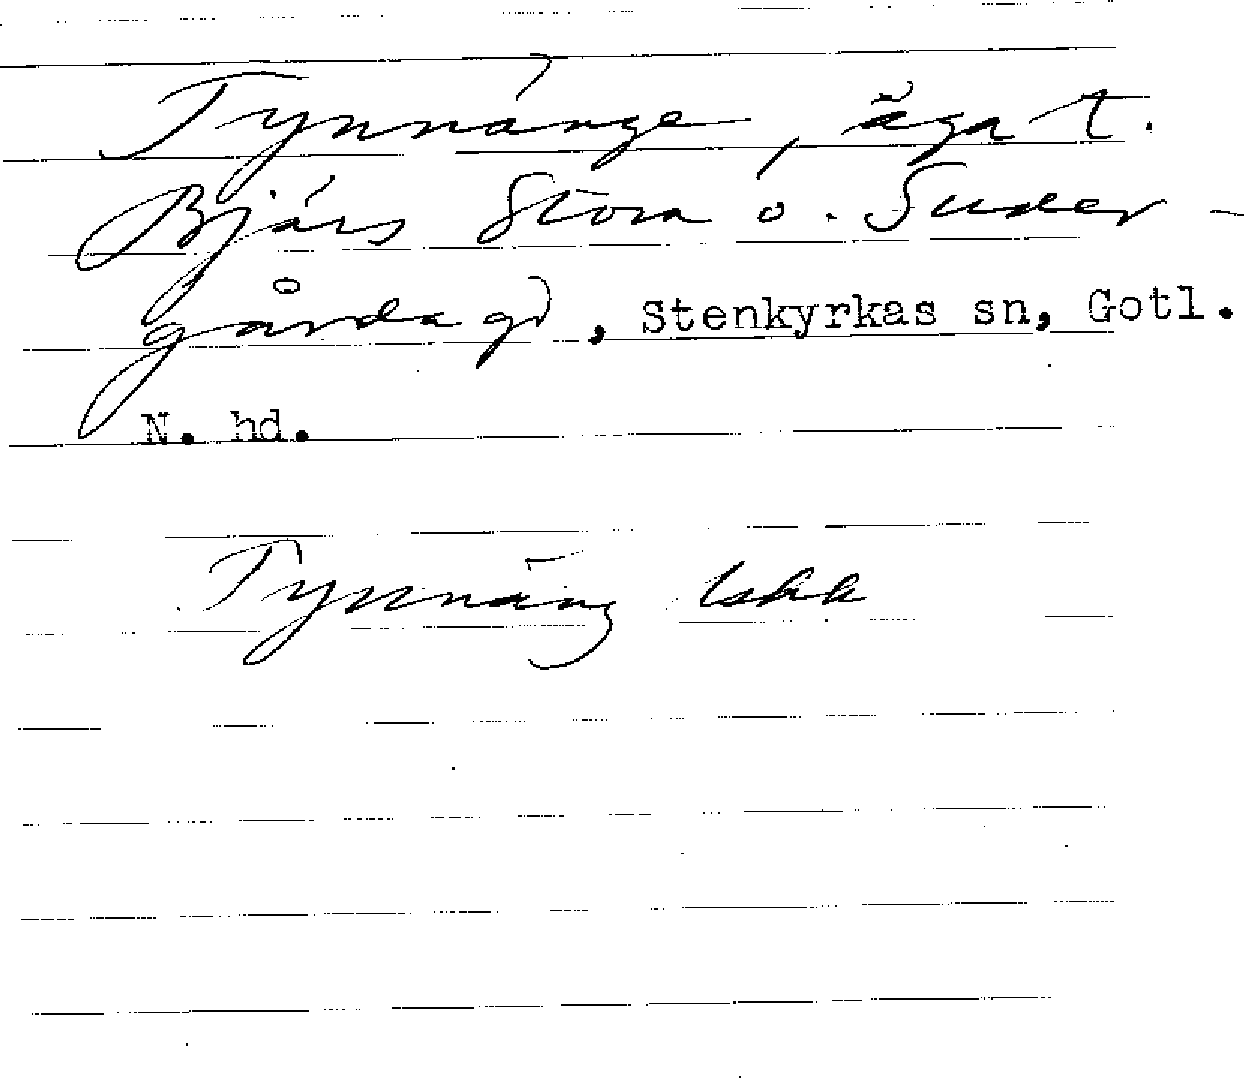 Tynnänge, äga t.
Bjärs Stora o. Suder-
gårda gd, Stenkyrkas sn, Gotl.
N. hd.
Tynnäng lskk